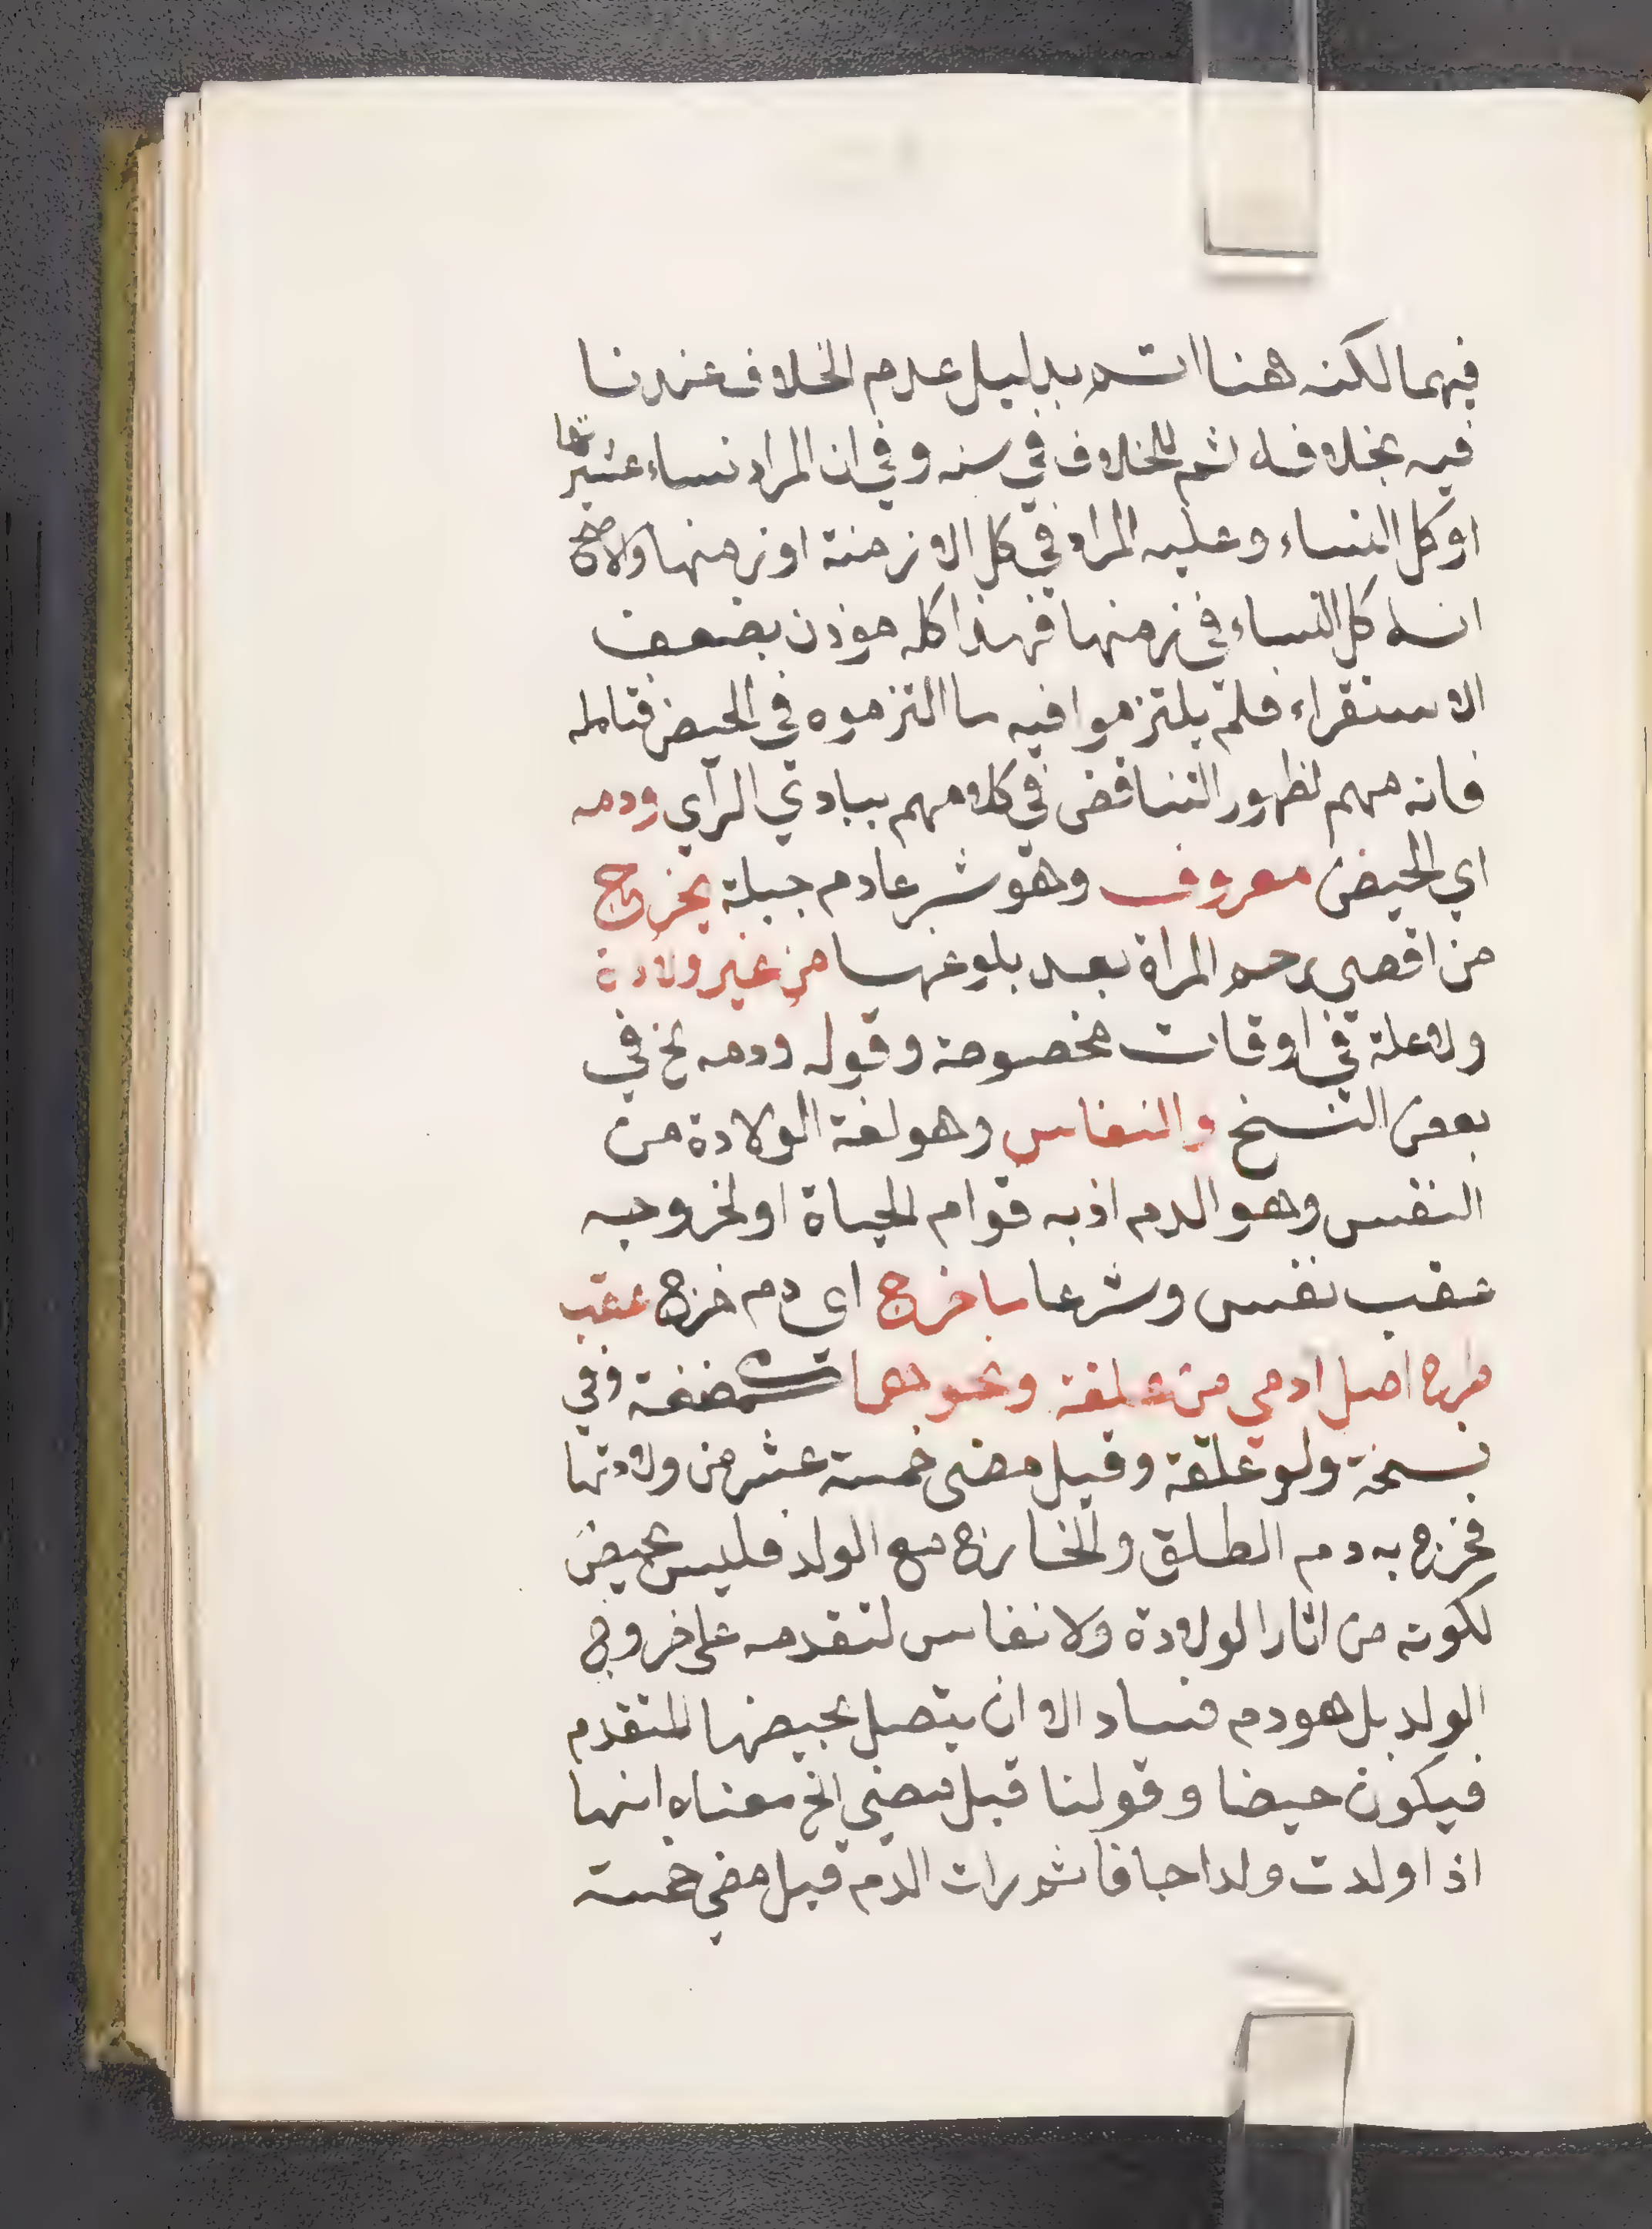 فيهما لكنه هنا اتم بدليل عدم الخلاف عندنا
فيه بخلافه ثم للخلاف في سنه وفي ان المراد نساء عشيرتها
او كل النساء وعليه المراد في كل الازمنة او زمنها والاصح
انه كل النساء في زمنها فهذا كله موذن بضعف
الاستقراء فلم يلتزموا فيه ما التزموه في الحيض فتامله
فانه مهم لظهور التناقض في كلامهم ببادي الرأي ودمه
اي الحيض معروف وهو شرعا دم جبلة يخرج
من اقصى رحم المراة بعد بلوغها من غير ولادة
ولا علة في اوقات مخصوصة وقوله ودمه الخ في
بعض النسخ والنفاس وهو لغة الولادة من
النفس وهو الدم اذ به قوام الحياة او لخروجه
عقب نفس وشرعا ما خرج اي دم خرج عقب
اصل ادمي من علقة ونحوها كمضغة وفي
نسخة ولو علقة وقبل مضى خمسة عشر من ولادتها
فخرج به دم الطلق والخارج مع الولد فليس بحيض
لكونه من اثار الولادة ولا نفاس لتقدمه على خروج
الولد بل هو دم فساد الا ان يتصل بحيضها المتقدم
فيكون حيضا وقولنا قبل مضي الخ معناه انها
اذا ولدت ولدا جافا ثم رات الدم قبل مضي خمسة